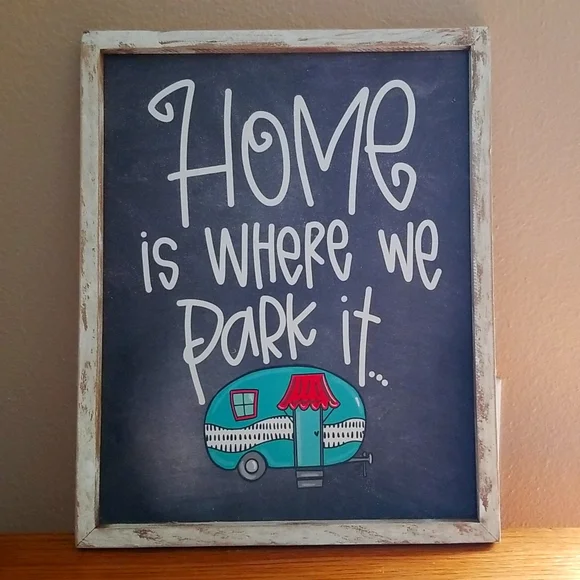 HOMe
is WHeRe We
PaRK it...